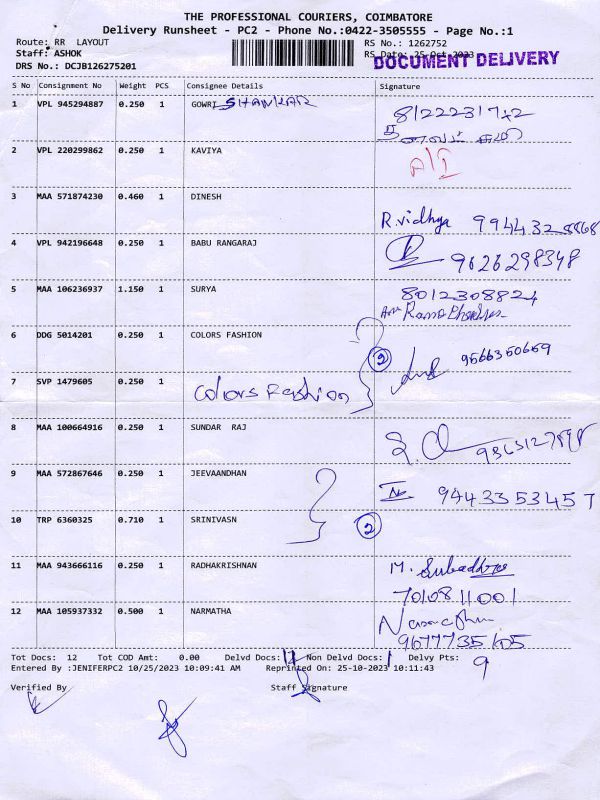 THE PROFESSIONAL COURIERS, COIMBATORE
Delivery Runsheet - PC2 - Phone No.:0422-3505555 - Page No.:1
Route: RR LAYOUT RS No.: 1262752
Staff: ASHOK RS Date: 25-Oct-2023
DOCUMENT DELIVERY
DRS No.: DCJB126275201
S No Consignment No Weight PCS Consignee Details Signature
1 VPL 945294887 0.250 1 GOWRI SHANKAR
2 VPL 220299862 0.250 1 KAVIYA
3 MAA 571874230 0.460 1 DINESH R.vidhya
4 VPL 942196648 0.250 1 BABU RANGARAJ 9626298348
5 MAA 106236937 1.150 1 SURYA 8012308824
6 DDG 5014201 0.250 1 COLORS FASHION 2 9566350659
7 SVP 1479605 0.250 1 Colors Fashion
8 MAA 100664916 0.250 1 SUNDAR RAJ
9 MAA 572867646 0.250 1 JEEVAANDHAN 9443353457
10 TRP 6360325 0.710 1 SRINIVASN 2
11 MAA 943666116 0.250 1 RADHAKRISHNAN M.
7010811001
12 MAA 105937332 0.500 1 NARMATHA
Tot Docs: 12 Tot COD Amt: 0.00 Delvd Docs: Non Delvd Docs: 1 Delvy Pts: 9
Entered By :JENIFERPC2 10/25/2023 10:09:41 AM Reprinted On: 25-10-2023 10:11:43
Verified By Staff Signature